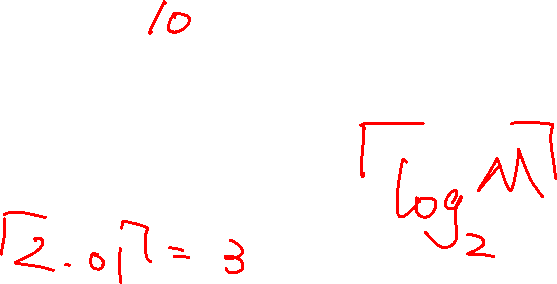 10
⌈log₂ M⌉
⌈2.01⌉ = 3